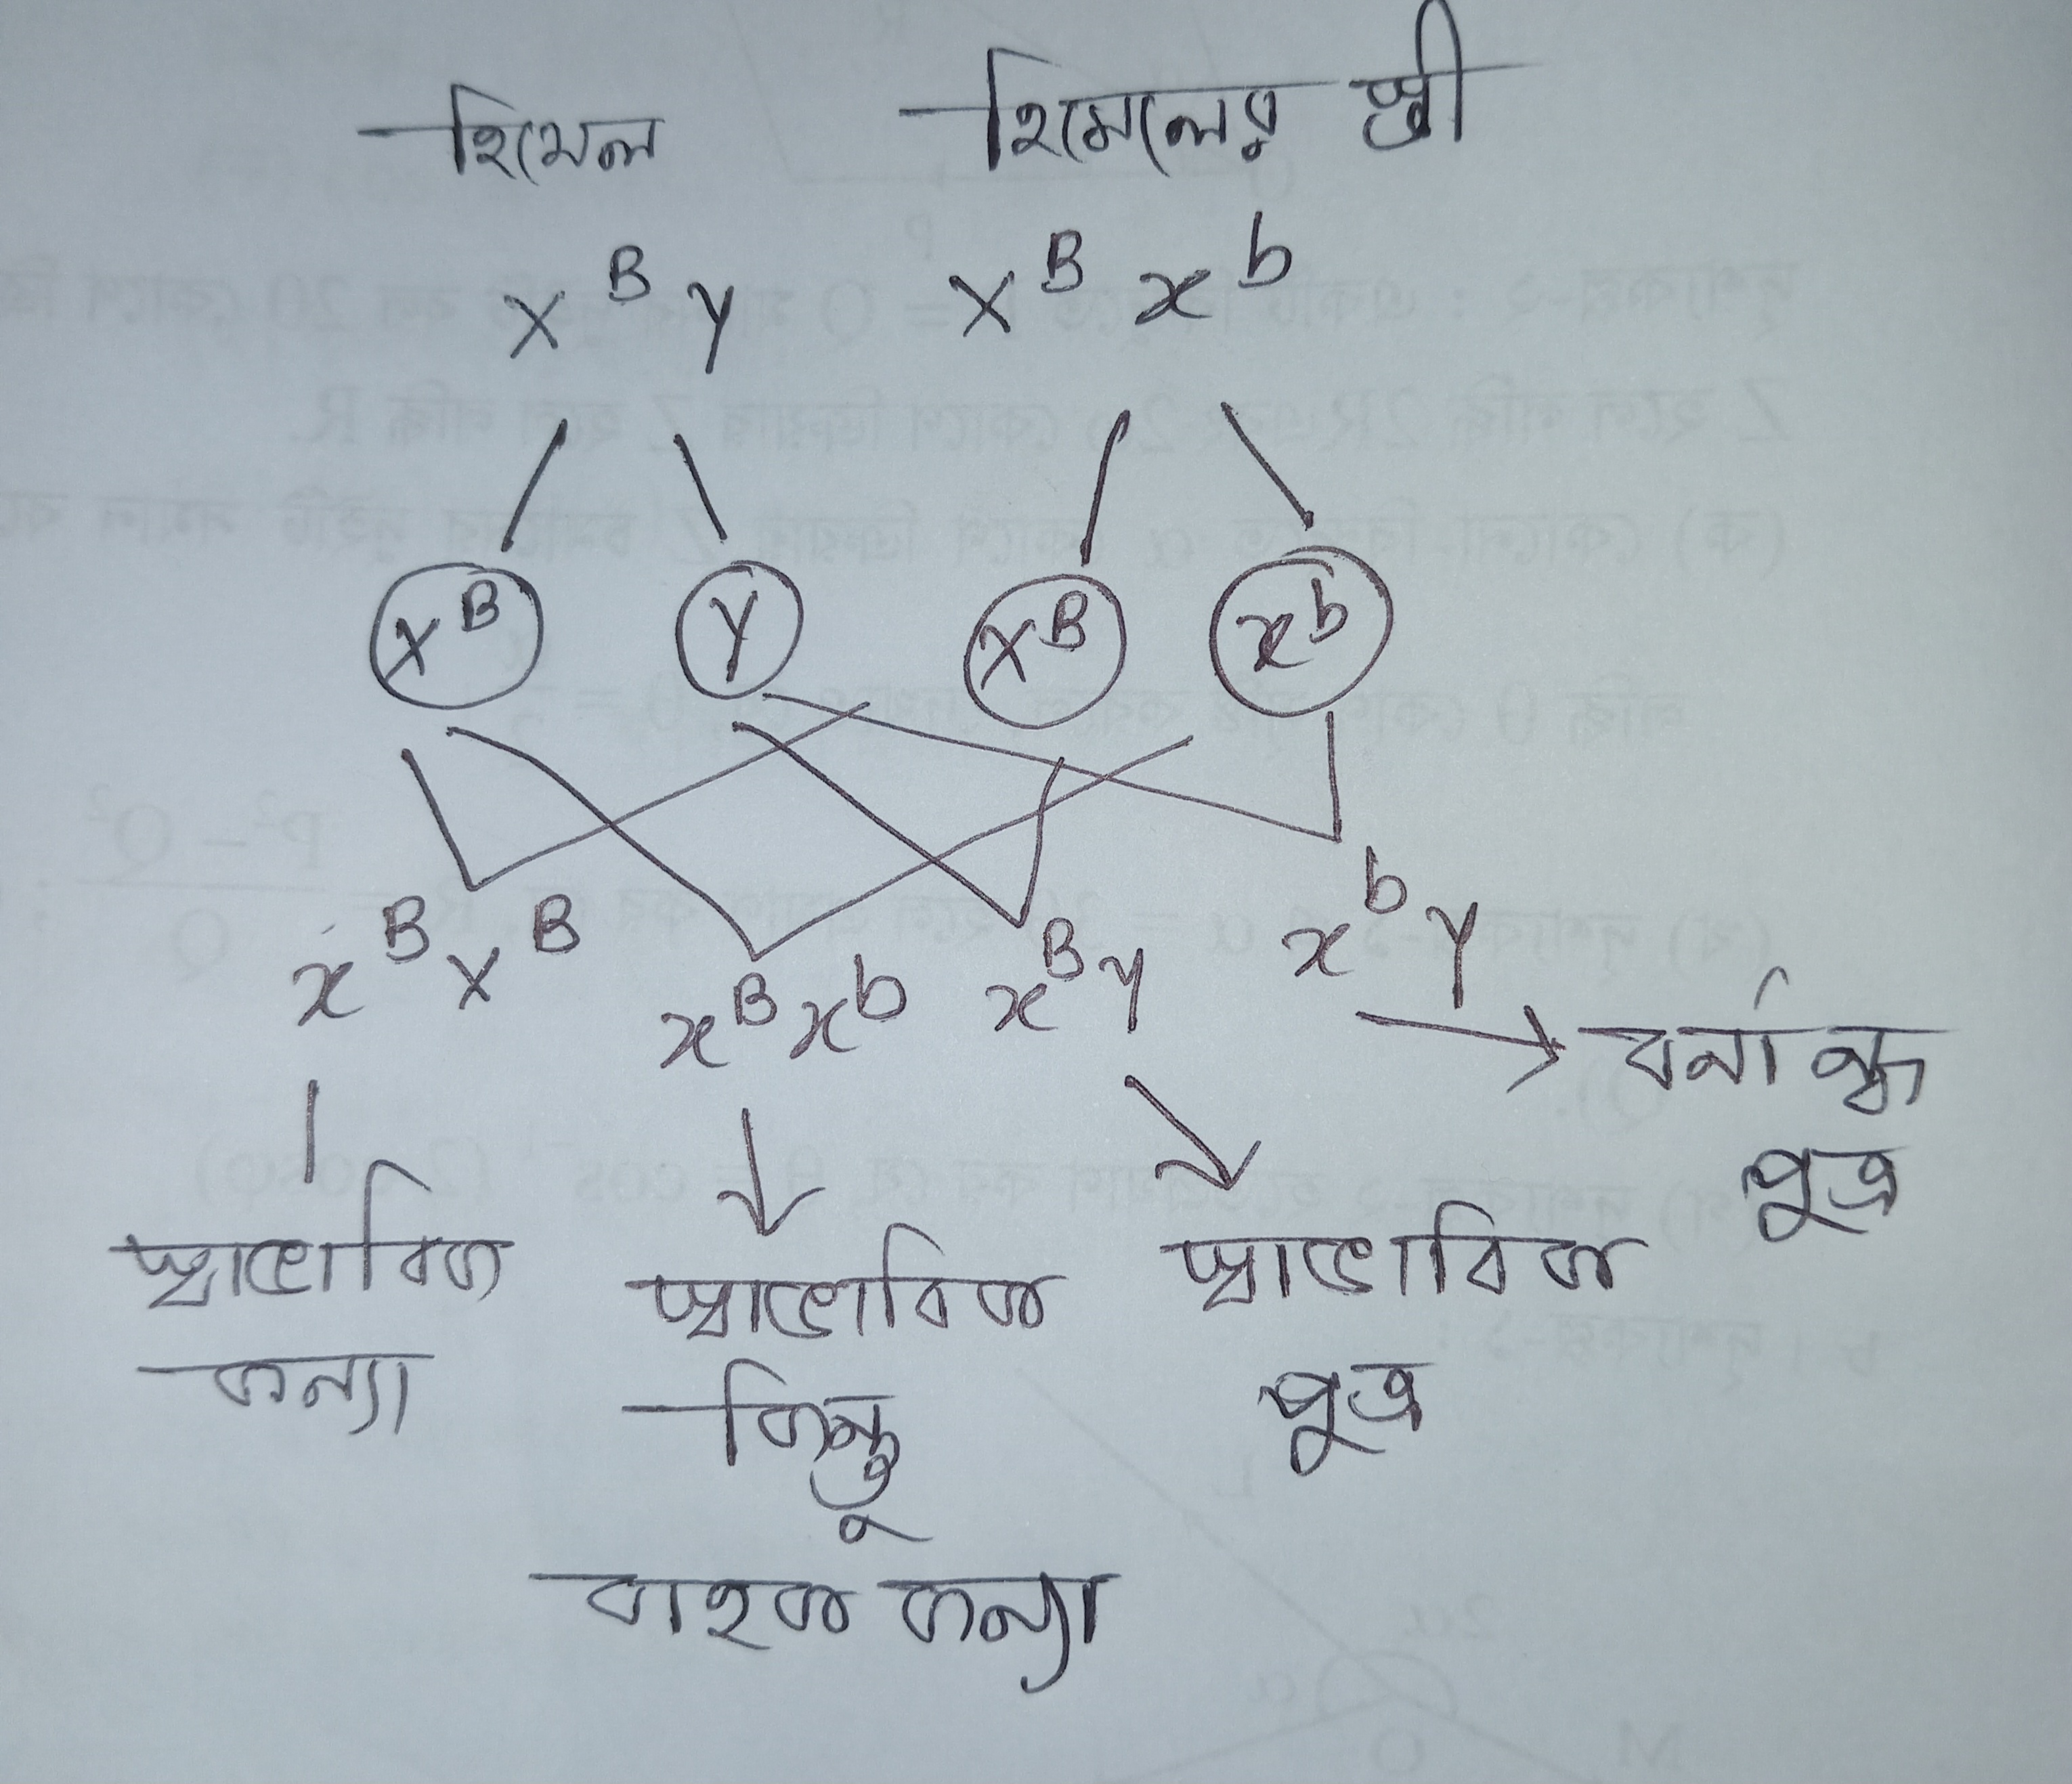 হিমেল হিমেলের স্ত্রী
X^B Y X^B x^b
X^B Y X^B x^b
x^B X^B x^B x^b x^B Y x^b Y
বর্নান্ধ
পুত্র
স্বাভাবিক
কন্যা
স্বাভাবিক
কিন্তু
বাহক কন্যা
স্বাভাবিক
পুত্র